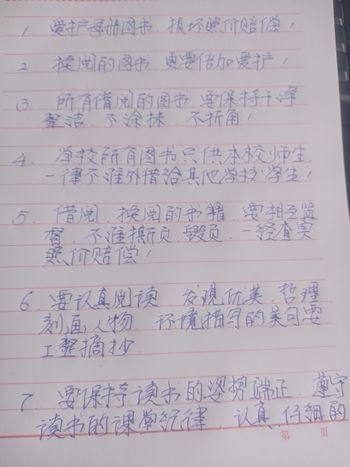 1、爱护每册图书，损坏照价赔偿！
2、换阅的图书，更要倍加爱护！
3、所有借阅的图书，要保持干净
整洁，不涂抹，不折角！
4、学校所有图书只供本校师生，
一律不准外借给其他学校学生！
5、借阅、换阅的书籍，要相互监
督，不准撕页、毁页，一经查实
照价赔偿！
6、要认真阅读，发现优美、哲理
刻画人物、环境描写的美句要
工整摘抄
7、要保持读书的姿势端正，遵守
读书的课堂纪律，认真仔细的
第 页